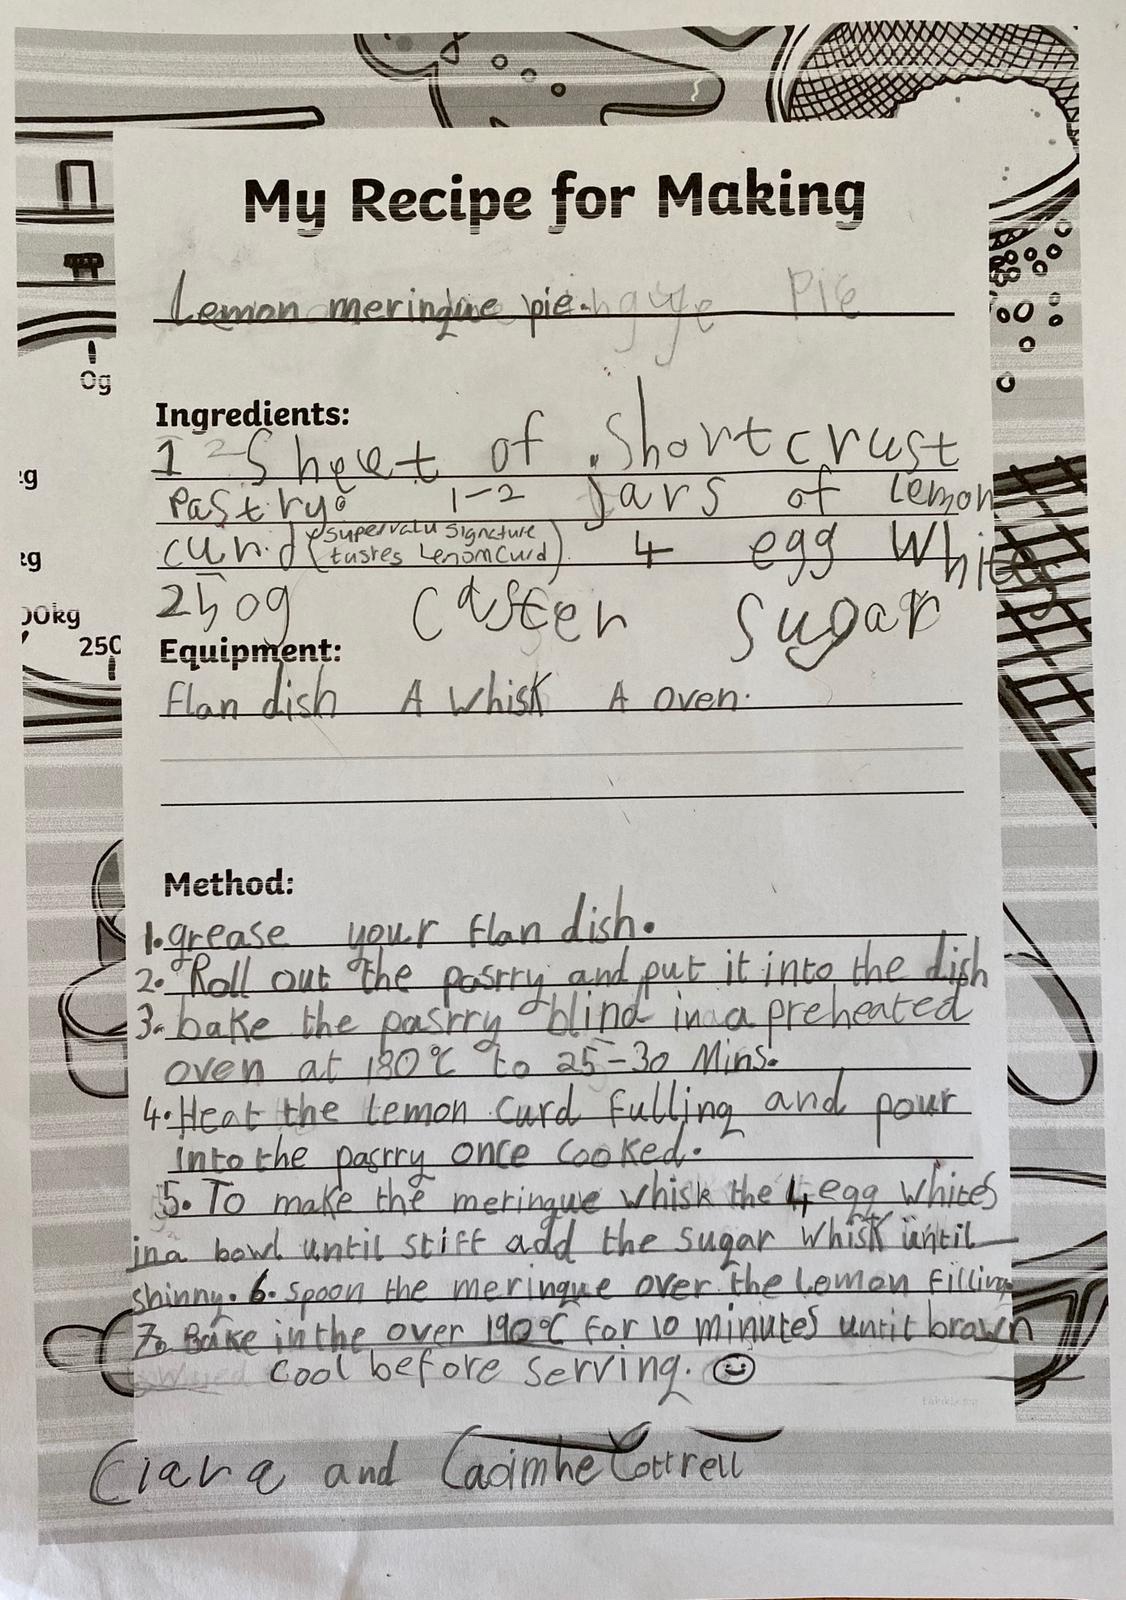 My Recipe for Making
Lemon meringue pie.
Pie
0g
Ingredients:
1 Sheet of Shortcrust
Pastry. 1-2 Jars of Lemon
curd (Supervalu Signature
tastes Lemon Curd). 4 egg Whites
250g Caster Sugar
00kg
250
Equipment:
flan dish A Whisk A oven.
Method:
1. grease your flan dish.
2. Roll out the pasrry and put it into the dish
3. bake the pasrry blind in a preheated
oven at 180°C to 25-30 Mins.
4. Heat the Lemon Curd fulling and pour
into the pasrry once cooked.
5. To make the meringue whisk the 4 egg whites
in a bowl until stiff add the sugar whisk until
shinny. 6. Spoon the meringue over the Lemon filling
7. Bake in the over 190°C for 10 minutes until brawn
Cool before serving.
Ciara and Caoimhe Cottrell